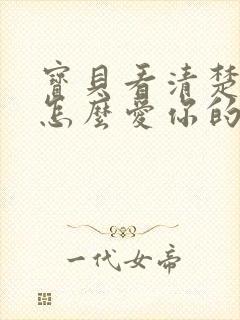 寶貝看清楚
怎麼愛你的
一代女帝